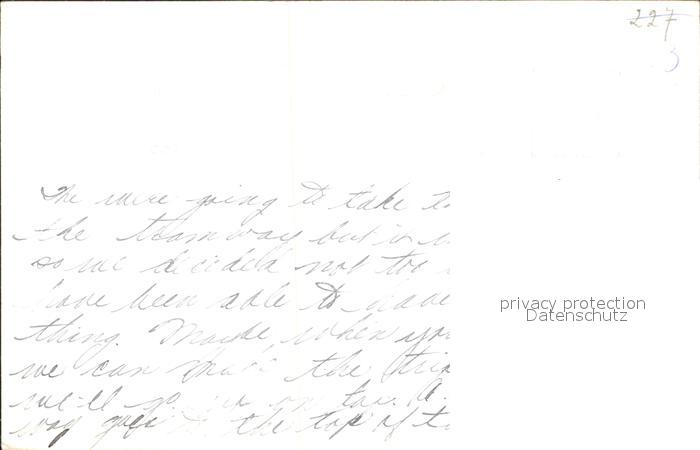 227
We were going to take
the tramway but it
so we decided not too
have been able to have
thing. Maybe, when you
we can make the trip
we'll go on
way goes to the top of
privacy protection
Datenschutz